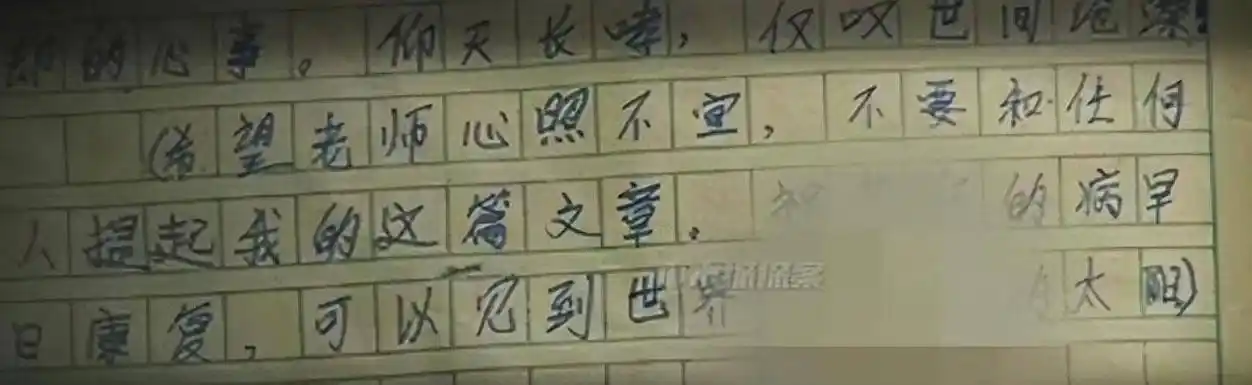 的心事。仰天长啸，仅叹世间沧桑!
(希望老师心照不宣，不要和任何
人提起我的这篇文章。祝 的病早
日康复，可以见到世界 太阳)